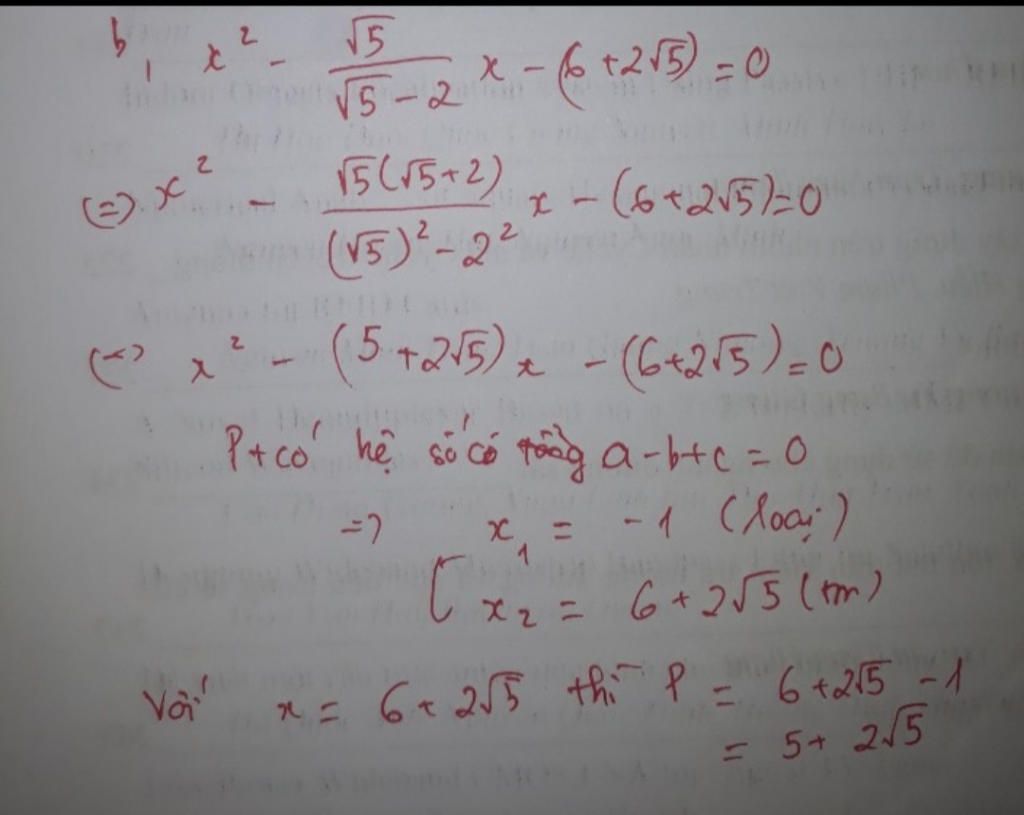 b, x² - √5/(√5 - 2) x - (6 + 2√5) = 0
(=) x² - √5(√5 + 2)/((√5)² - 2²) x - (6 + 2√5) = 0
(=) x² - (5 + 2√5) x - (6 + 2√5) = 0
Pt có hệ số có tổng a - b + c = 0
=> x₁ = -1 (loại)
[ x₂ = 6 + 2√5 (tm)
Với x = 6 + 2√5 thì P = 6 + 2√5 - 1
= 5 + 2√5